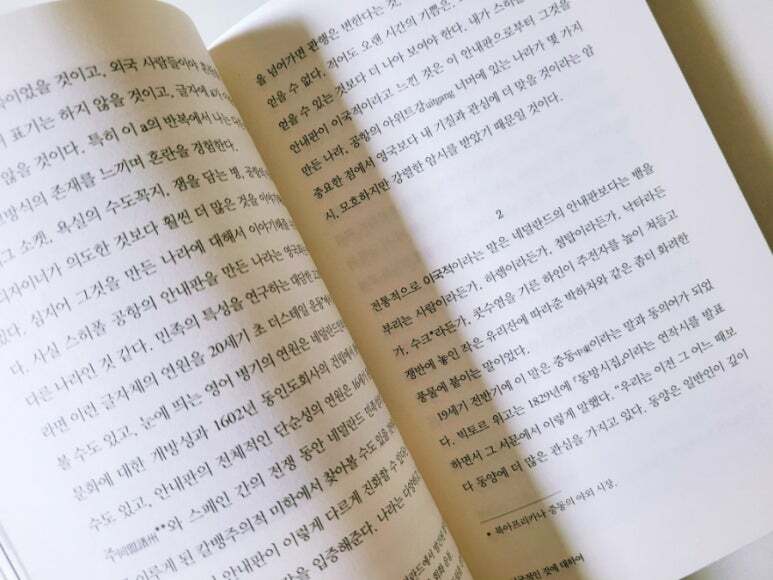 이었을 것이고, 외국 사람들이야
표기는 하지 않을 것이고, 글자에 a가
않을 것이다. 특히 이 a의 반복에서 나는
방식의 존재를 느끼며 혼란을 경험한다.
그 소켓, 욕실의 수도꼭지, 잼을 담는 병, 공항의
디자이너가 의도한 것보다 훨씬 더 많은 것을 이야기
있다. 심지어 그것을 만든 나라에 대해서 이야기해줄
다. 사실 스히폴 공항의 안내판을 만든 나라는 영국과는
다른 나라인 것 같다. 민족의 특성을 연구하는 대담한
라면 이런 글자체의 연원을 20세기 초 더스테일 운동
볼 수도 있고, 눈에 띄는 영어 병기의 연원은 네덜란드인
문화에 대한 개방성과 1602년 동인도회사의 건립에서
수도 있고, 안내판의 전체적인 단순성의 연원은 16세기
주同盟諸州**와 스페인 간의 전쟁 동안 네덜란드
이루게 된 칼뱅주의적 미학에서 찾아볼 수도 있을
안내판이 이렇게 다르게 진화할 수 있
을 입증해준다. 나라는 다양
을 넘어가면 관행은 변한다는 것
얻을 수 없다. 적어도 오랜 시간의 기쁨은.
얻을 수 있는 것보다 더 나아 보여야 한다. 내가 스히폴
안내판이 이국적이라고 느낀 것은 이 안내판으로부터 그것을
만든 나라, 공항의 아위트강uitgang 너머에 있는 나라가 몇 가지
중요한 점에서 영국보다 내 기질과 관심에 더 맞을 것이라는 암
시, 모호하지만 강렬한 암시를 받았기 때문일 것이다.
2
전통적으로 이국적이라는 말은 네덜란드의 안내판보다는 뱀을
부리는 사람이라든가, 하렘이라든가, 첨탑이라든가, 낙타라든
가, 수크*라든가, 콧수염을 기른 하인이 주전자를 높이 쳐들고
쟁반에 놓인 작은 유리잔에 따라준 박하차와 같은 좀더 화려한
풍물에 붙이는 말이었다.
19세기 전반기에 이 말은 중동中東이라는 말과 동의어가 되었
다. 빅토르 위고는 1829년에 『동방시집』이라는 연작시를 발표
하면서 그 서문에서 이렇게 말했다. "우리는 이전 그 어느 때보
다 동양에 더 많은 관심을 가지고 있다. 동양은 일반인이 깊이
* 북아프리카나 중동의 야외 시장.
이국적인 것에 대하여